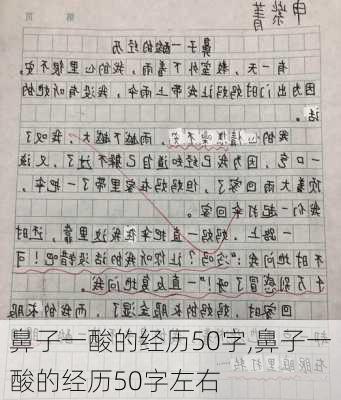 申紫菁
鼻子一酸的经历
有一天，教室外下着雨，我的心里很不安，
因为出门时妈妈让我带上雨伞，我没有听她的
话。
我的心情 不安，雨越下越大，我叹了
一口气，因为我已知道自己躲不过了，又
顶着大雨回家了，但妈妈在家里带了一把伞，
我们一起打伞回家。
一路上，妈妈一直把伞往我这里靠，还时
不时地问我：“冷吗？让你听我的话没错吧！可
千万别感冒了呀！”一直反复地问我。
回家时，妈妈的衣服全湿了，而我的衣服
鼻子一酸的经历50字,鼻子一
酸的经历50字左右
在眼眶里打转